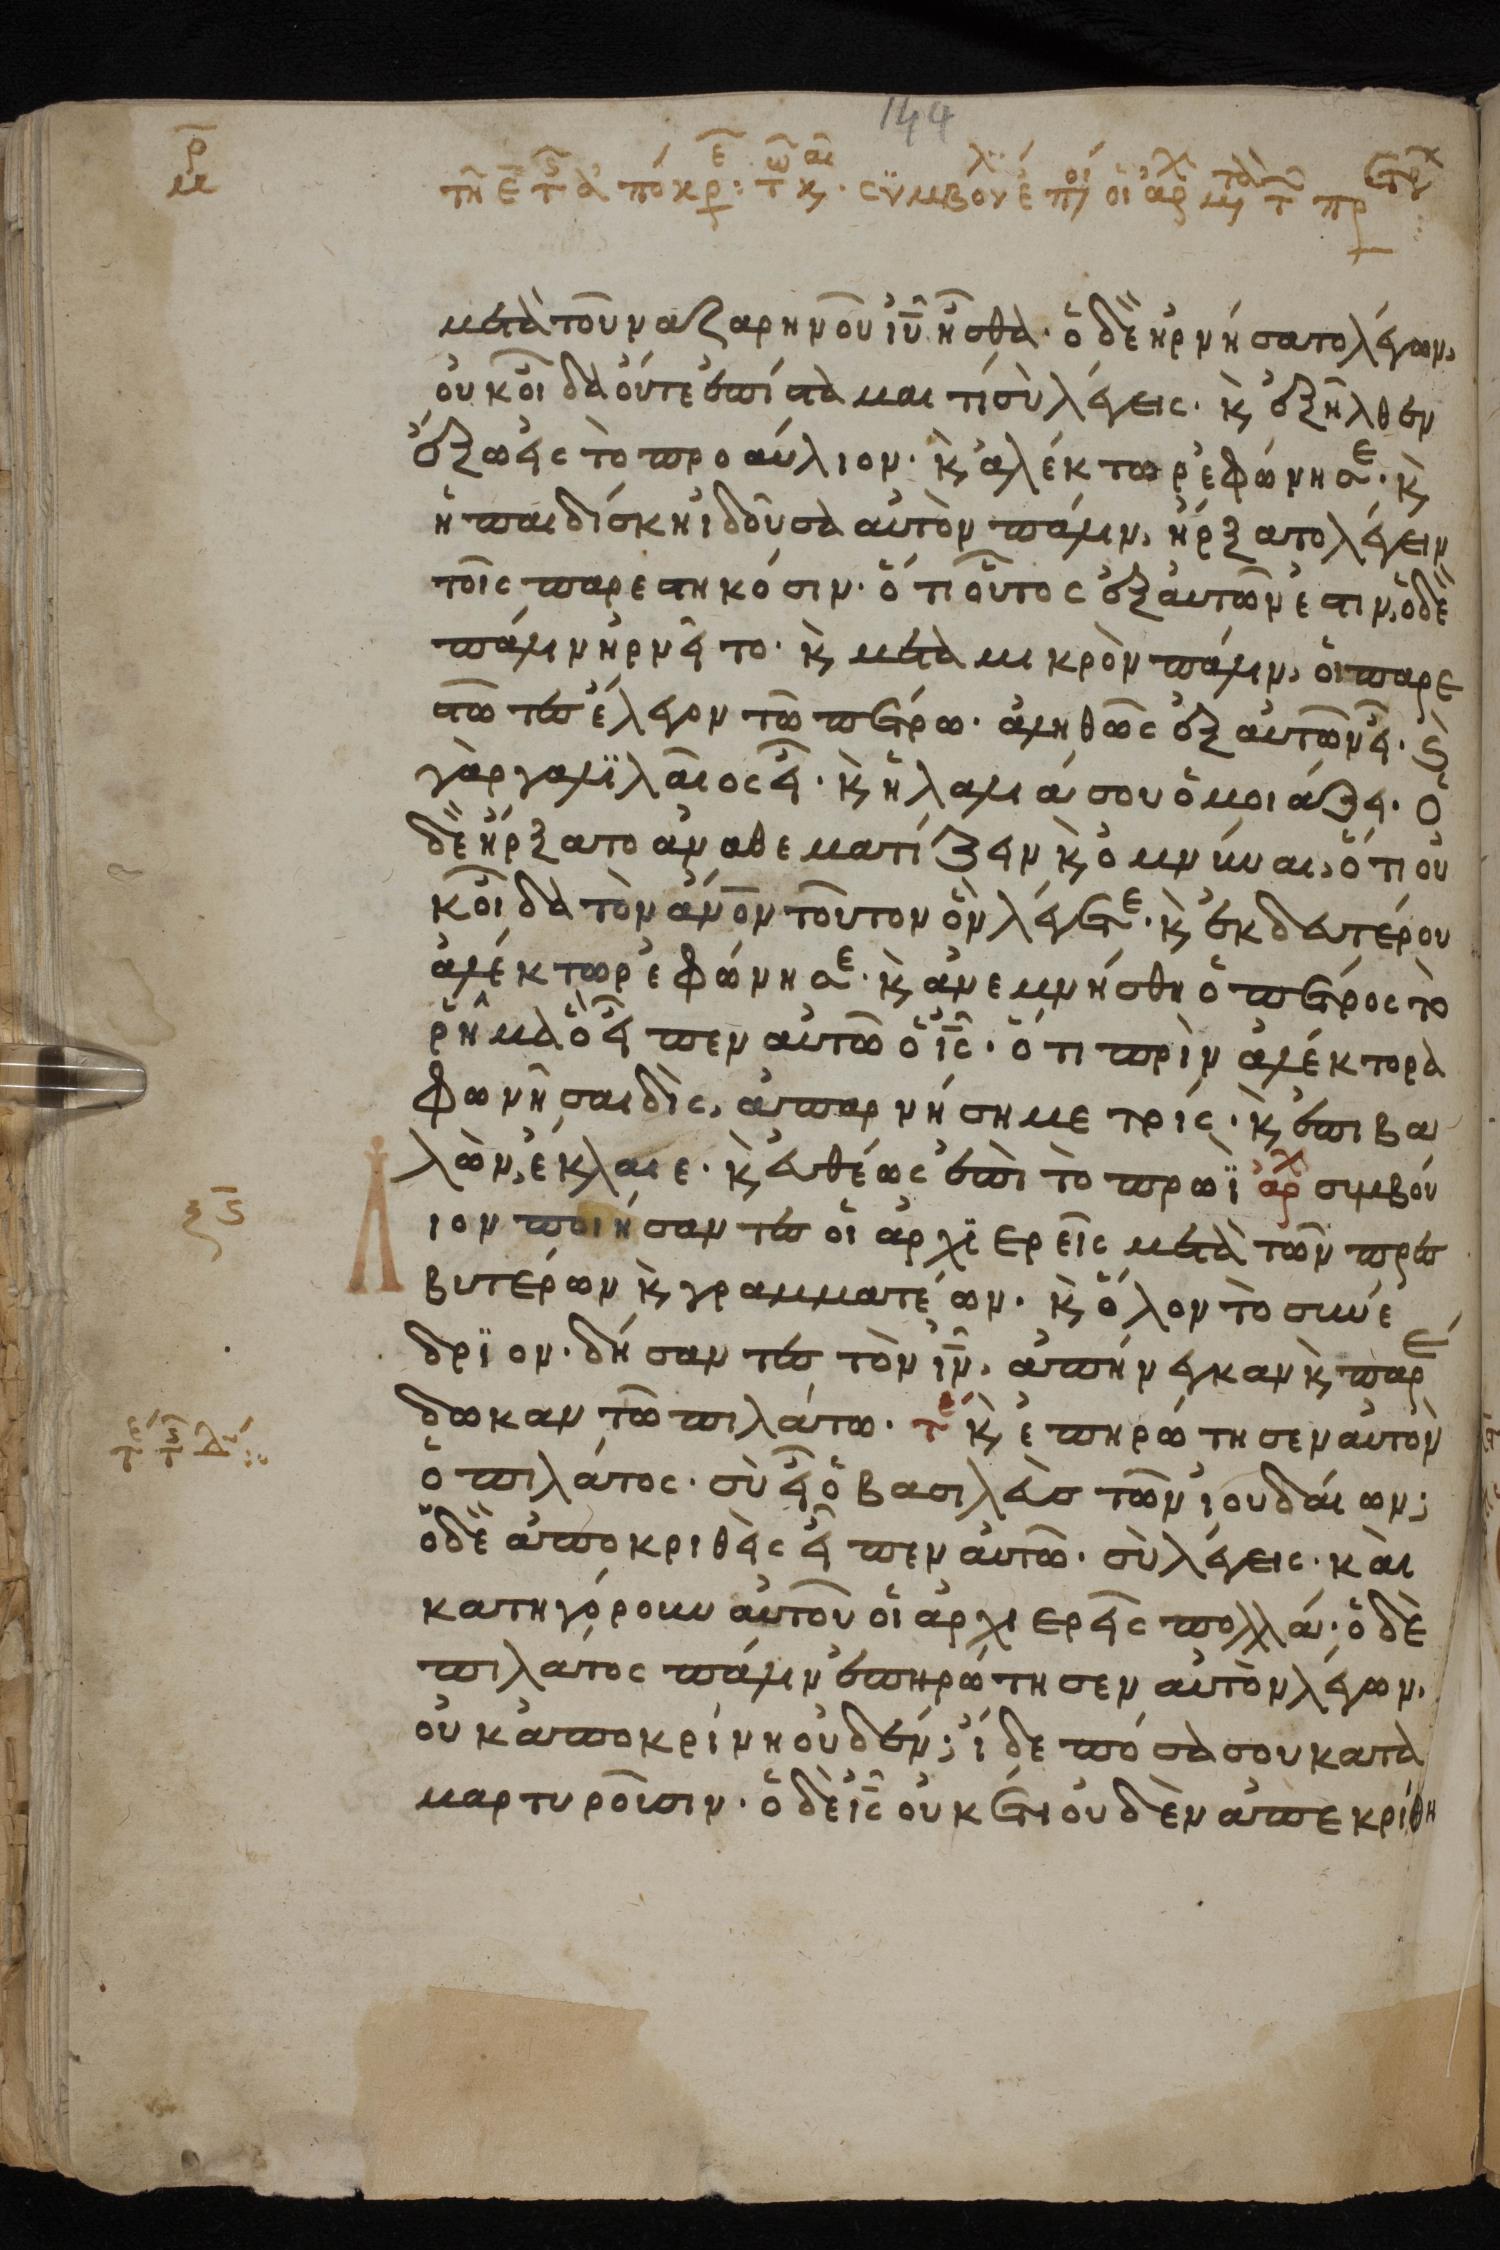 144
μετὰ τοῦ ναζαρηνοῦ ιῡ ἦσθα· ὁ δὲ ἠρνήσατο λέγων,
οὐκ οἶδα οὔτε ἐπίσταμαι τί σὺ λέγεις· κ̀ ἐξῆλθεν
ἔξω εἰς τὸ προαύλιον· κ̀ ἀλέκτωρ ἐφώνησε· κ̀
ἡ παιδίσκη ἰδοῦσα αὐτὸν πάλιν, ἤρξατο λέγειν
τοῖς παρεστηκόσιν· ὅτι οὗτος ἐξ αὐτῶν ἐστιν, ὁ δὲ
πάλιν ἠρνεῖτο· κ̀ μετὰ μικρὸν πάλιν, οἱ παρε
στῶτες ἔλεγον τῶ πέτρω· ἀληθῶς ἐξ αὐτῶν εἶ· κ̀
γὰρ γαλιλαῖος εἶ· κ̀ ἡ λαλιά σου ὁμοιάζει· ὁ
δὲ ἤρξατο ἀναθεματίζειν κ̀ ὀμνύναι, ὅτι οὐ
κ οἶδα τὸν ἄν̅ον τοῦτον ὃν λέγετε· κ̀ ἐκ δευτέρου
ἀλέκτωρ ἐφώνησε· κ̀ ἀνεμνήσθη ὁ πέτρος τὸ
ῥῆμα ὃ εἶπεν αὐτῶ ὁ ις̅· ὅτι πρὶν ἀλέκτορα
φωνῆσαι δὶς, ἀπαρνήση με τρίς· κ̀ ἐπιβα
λὼν, ἔκλαιε· κ̀ εὐθέως ἐπὶ τὸ πρωῒ ἀρχ συμβού
ιον ποιήσαντες οἱ ἀρχιερεῖς μετὰ τῶν πρεσ
βυτέρων κ̀ γραμματέων· κ̀ ὅλον τὸ συνέ
δριον· δήσαντες τὸν ιν̅, ἀπήνεγκαν κ̀ παρέ
δωκαν τῶ πιλάτω· τε κ̀ ἐπηρώτησεν αὐτὸν
ὁ πιλάτος· σὺ εἶ ὁ βασιλεὺς τῶν ἰουδαίων;
ὁ δὲ ἀποκριθεὶς εἶπεν αὐτῶ· σὺ λέγεις· καὶ
κατηγόρουν αὐτοῦ οἱ ἀρχιερεῖς πολλά· ὁ δὲ
πιλάτος πάλιν ἐπηρώτησεν αὐτὸν λέγων·
οὐκ ἀποκρίνη οὐδέν; ἴδε πόσα σου κατα
μαρτυροῦσιν· ὁ δὲ ις̅ οὐκέτι οὐδὲν ἀπεκρίθη